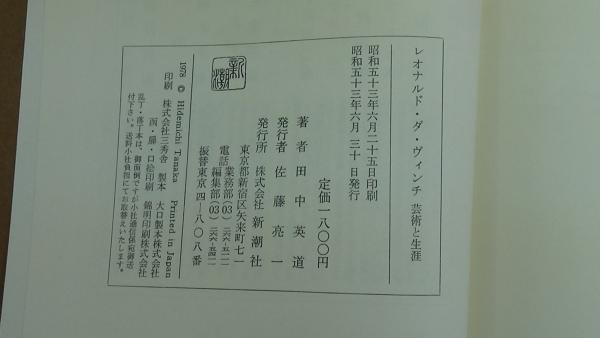 レオナルド・ダ・ヴィンチ 芸術と生涯
昭和五十三年六月二十五日印刷
昭和五十三年六月 三十 日発行
定価一八〇〇円
著者 田中英道
発行者 佐藤亮一
発行所 株式会社 新潮社
東京都新宿区矢来町七一
電話 業務部(03)二六六-五一一一
編集部(03)二六六-五四一一
振替東京四-八〇八番
新潮
1978 © Hidemichi Tanaka Printed in Japan
印刷 株式会社三秀舎 製本 大口製本株式会社
函・扉・口絵印刷 錦明印刷株式会社
乱丁・落丁本は、御面倒ですが小社通信係宛御送
付下さい。送料小社負担にてお取替えいたします。